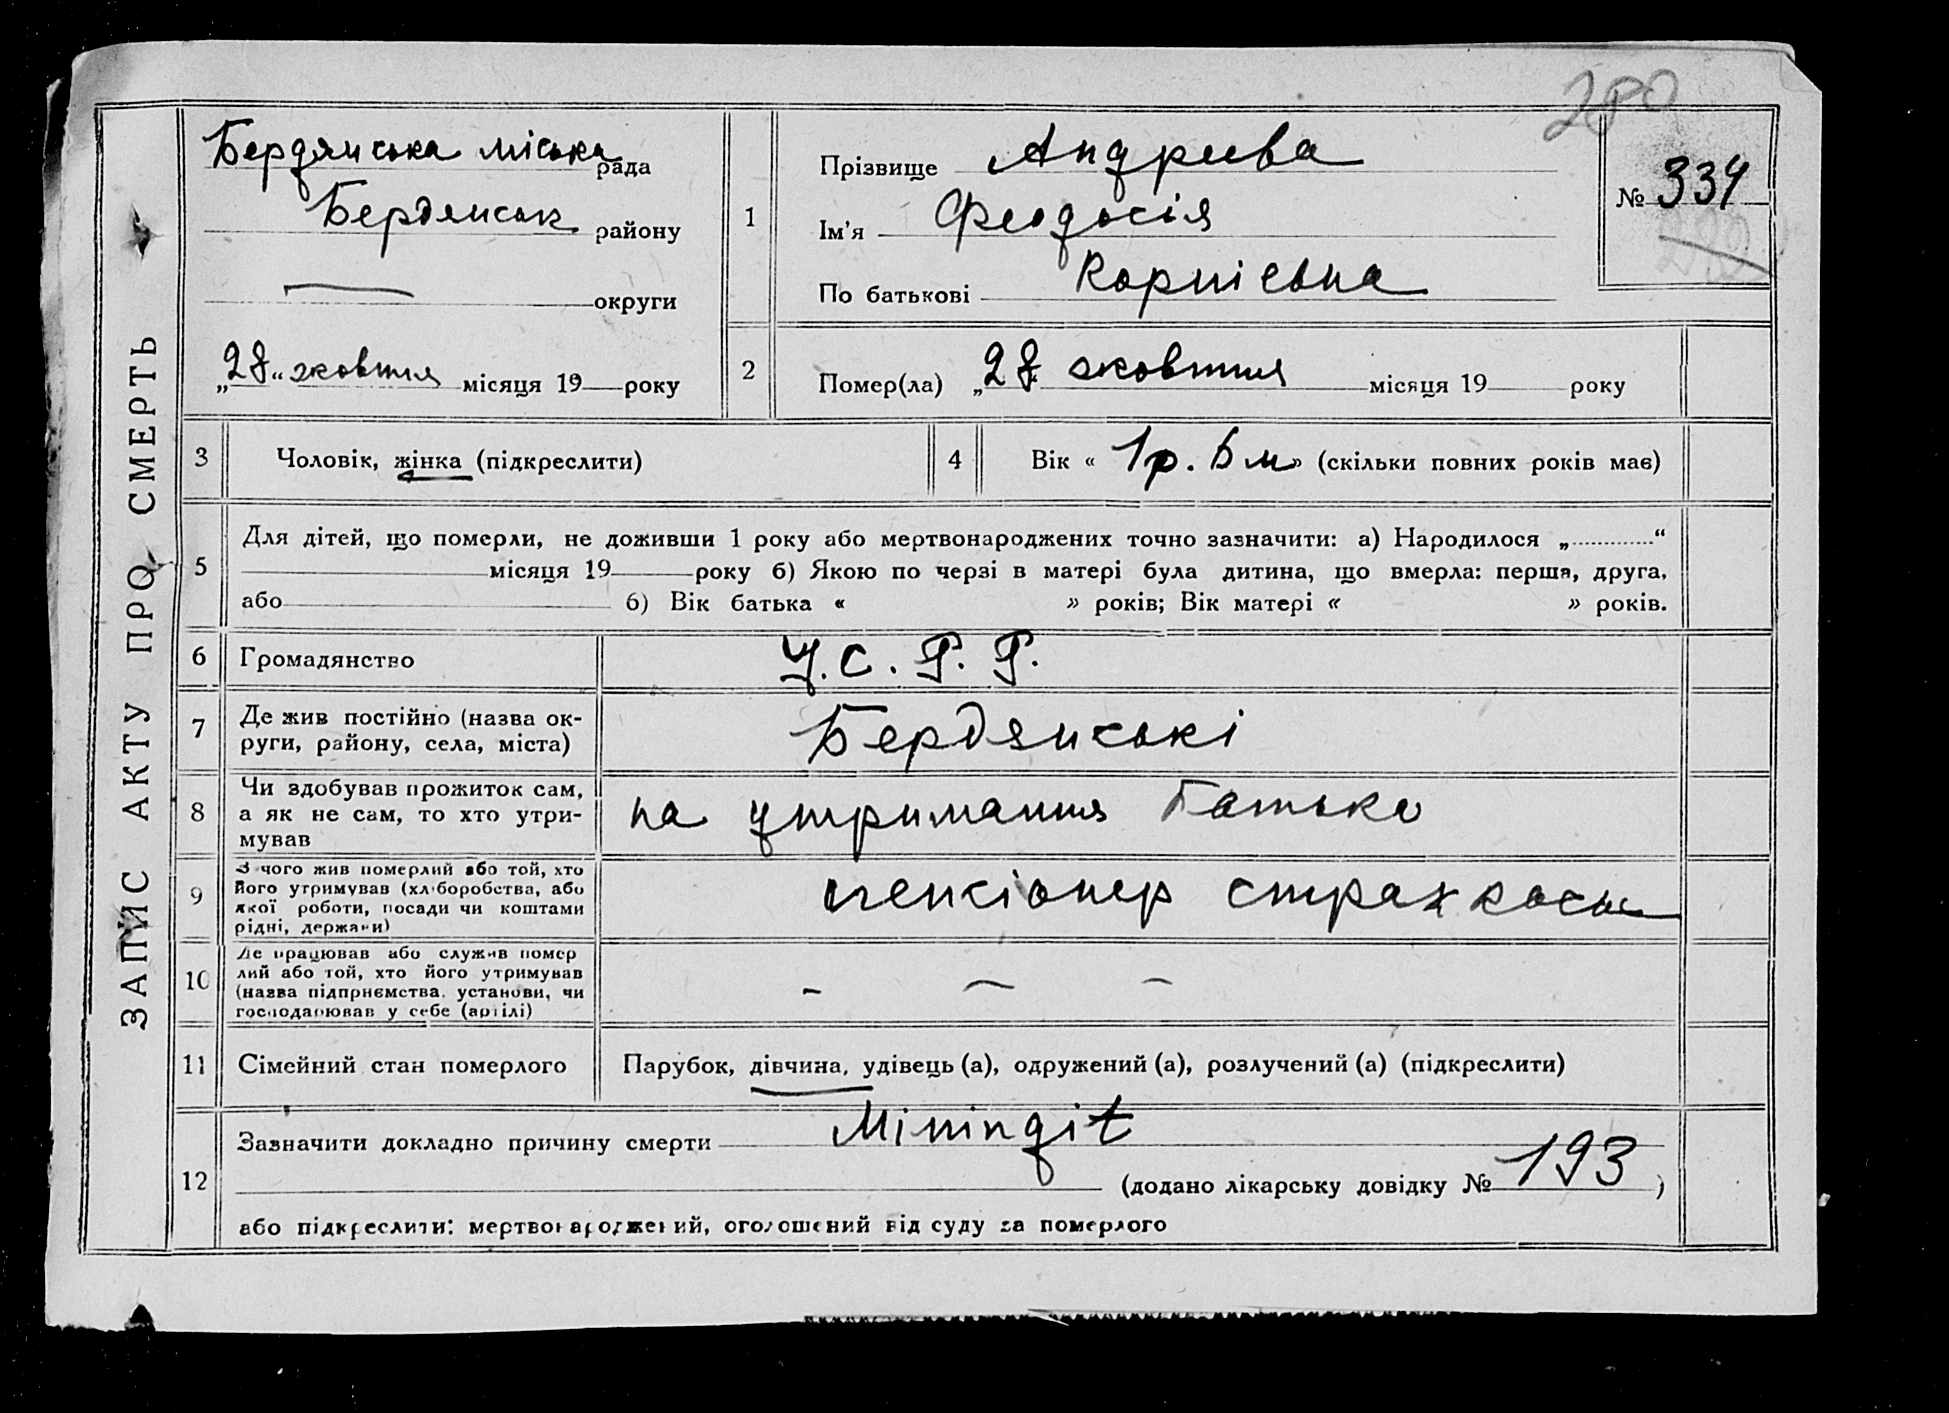 280
ЗАПИС АКТУ ПРО СМЕРТЬ
Бердянська міська рада
Бердянськ району
округи
„28“ жовтня місяця 19 року
1
Прізвище Андреева
Ім'я Феодосія
По батькові Корнієвна
№ 334
2
Помер(ла) „28 жовтня місяця 19 року
3
Чоловік, жінка (підкреслити)
4
Вік « 1 р. 6 м» (скільки повних років має)
5
Для дітей, що померли, не доживши 1 року або мертвонароджених точно зазначити: а) Народилося „ “
місяця 19 року б) Якою по черзі в матері була дитина, що вмерла: перша, друга,
або б) Вік батька « » років; Вік матері « » років.
6
Громадянство
У.С.Р.Р.
7
Де жив постійно (назва ок-
руги, району, села, міста)
Бердянські
8
Чи здобував прожиток сам,
а як не сам, то хто утри-
мував
на утримання батька
9
З чого жив померлий або той, хто
його утримував (хліборобства, або
якої роботи, посади чи коштами
рідні, держави)
пенсіонер страхкаси
10
Де працював або служив помер
лий або той, хто його утримував
(назва підприємства, установи, чи
господарював у себе (артілі)
– – –
11
Сімейний стан померлого
Парубок, дівчина, удівець (а), одружений (а), розлучений (а) (підкреслити)
12
Зазначити докладно причину смерти Miningit
(додано лікарську довідку № 193 )
або підкреслити: мертвонароджений, оголошений від суду за померлого